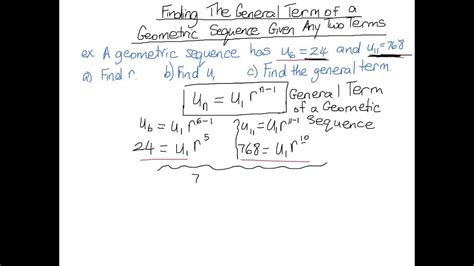 Finding The General Term of a
Geometric Sequence Given Any Two Terms
ex. A geometric sequence has u₆ = 24 and u₁₁ = 768
a) Find r. b) Find u₁ c) Find the general term.
uₙ = u₁ rⁿ⁻¹ General Term
of a Geometic
Sequence
u₆ = u₁ r⁶⁻¹ u₁₁ = u₁ r¹¹⁻¹
24 = u₁ r⁵ 768 = u₁ r¹⁰
7